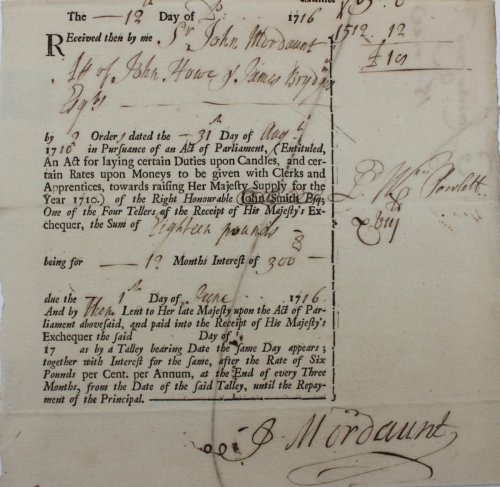 The — 12th Day of 1716
Received then by me Sr John Mordaunt
1512 12
of John Howe & James Brydges
£19
Esqrs
by 2 Orders dated the — 31th Day of Augt
1710 in Pursuance of an Act of Parliament, (Entituled,
An Act for laying certain Duties upon Candles, and cer-
tain Rates upon Moneys to be given with Clerks and
Apprentices, towards raising Her Majesty Supply for the
Year 1710.) of the Right Honourable John Smith Esq;
One of the Four Tellers of the Receipt of His Majesty's Ex-
chequer, the Sum of Eighteen pounds
being for — 12 Months Interest of 300
due the 1st Day of June 1716
And by them Lent to Her late Majesty upon the Act of Par-
liament abovesaid, and paid into the Receipt of His Majesty's
Exchequer the said Day of
17 as by a Talley bearing Date the same Day appears;
together with Interest for the same, after the Rate of Six
Pounds per Cent. per Annum, at the End of every Three
Months, from the Date of the said Talley, until the Repay-
ment of the Principal.
J Mordaunt